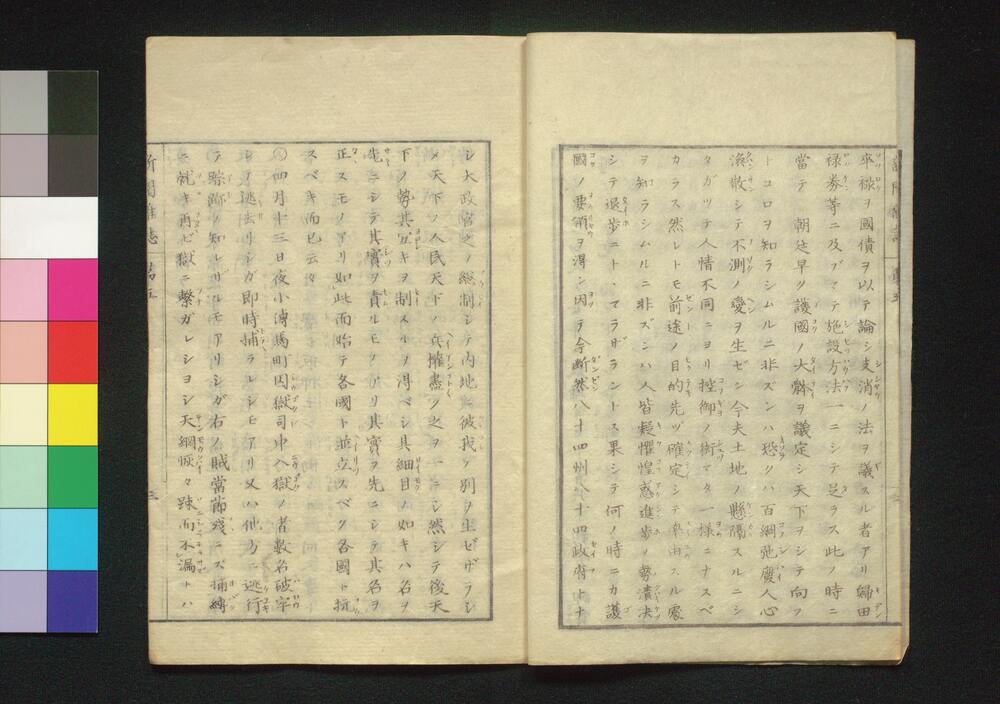 卒禄ヲ國債ヲ以テ論シ支消ノ法ヲ議スル者アリ歸田
禄券等ニ及ブマテ施設方法一ニシテ足ラス此ノ時ニ
當テ 朝廷早ク護國ノ大體ヲ議定シ天下ヲシテ向フ
トコロヲ知ラシムルニ非ズンハ恐クハ百綱弛廢人心
渙散シテ不測ノ變ヲ生ゼン今夫土地ノ懸隔スルニシ
タガツテ人情不同ニヨリ控御ノ術マタ一様ニナスベ
カラス然レトモ前途ノ目的先ヅ確定シテ率由スル處
ヲ知ラシムルニ非ズンハ人皆疑懼惶惑進歩ノ勢潰决
シテ退歩ニトヽマラザラントス果シテ何ノ時ニカ護
國ノ要領ヲ得ン因テ今断然八十四州八十四政府トナ
シ大政官之ヲ總制シテ内地ニ彼我ノ別ヲ生ゼザラシ
メ天下ノ人民天下ノ兵權盡ク之ヲ一ニシ然シテ後天
下ノ勢其宜キヲ制スルヲ得ベシ其細目ノ如キハ名ヲ
先ニシテ其實ヲ責ルモノアリ其實ヲ先ニシテ其名ヲ
正スモノアリ如此而始テ各國ト並立スベク各國ト抗
スベキ而已云々
〇四月十三日夜小傳馬町囚獄司中入獄ノ者數名破牢
シテ逃去リシガ即時捕ラレシモアリ又ハ他方ニ逃行
テ踪跡ノ知レザルモアリシガ右ノ賊當節殘ラズ捕縛
ニ就キ再ビ獄ニ繋ガレシヨシ天網恢々踈而不漏トハ
新聞雜誌 第五 三